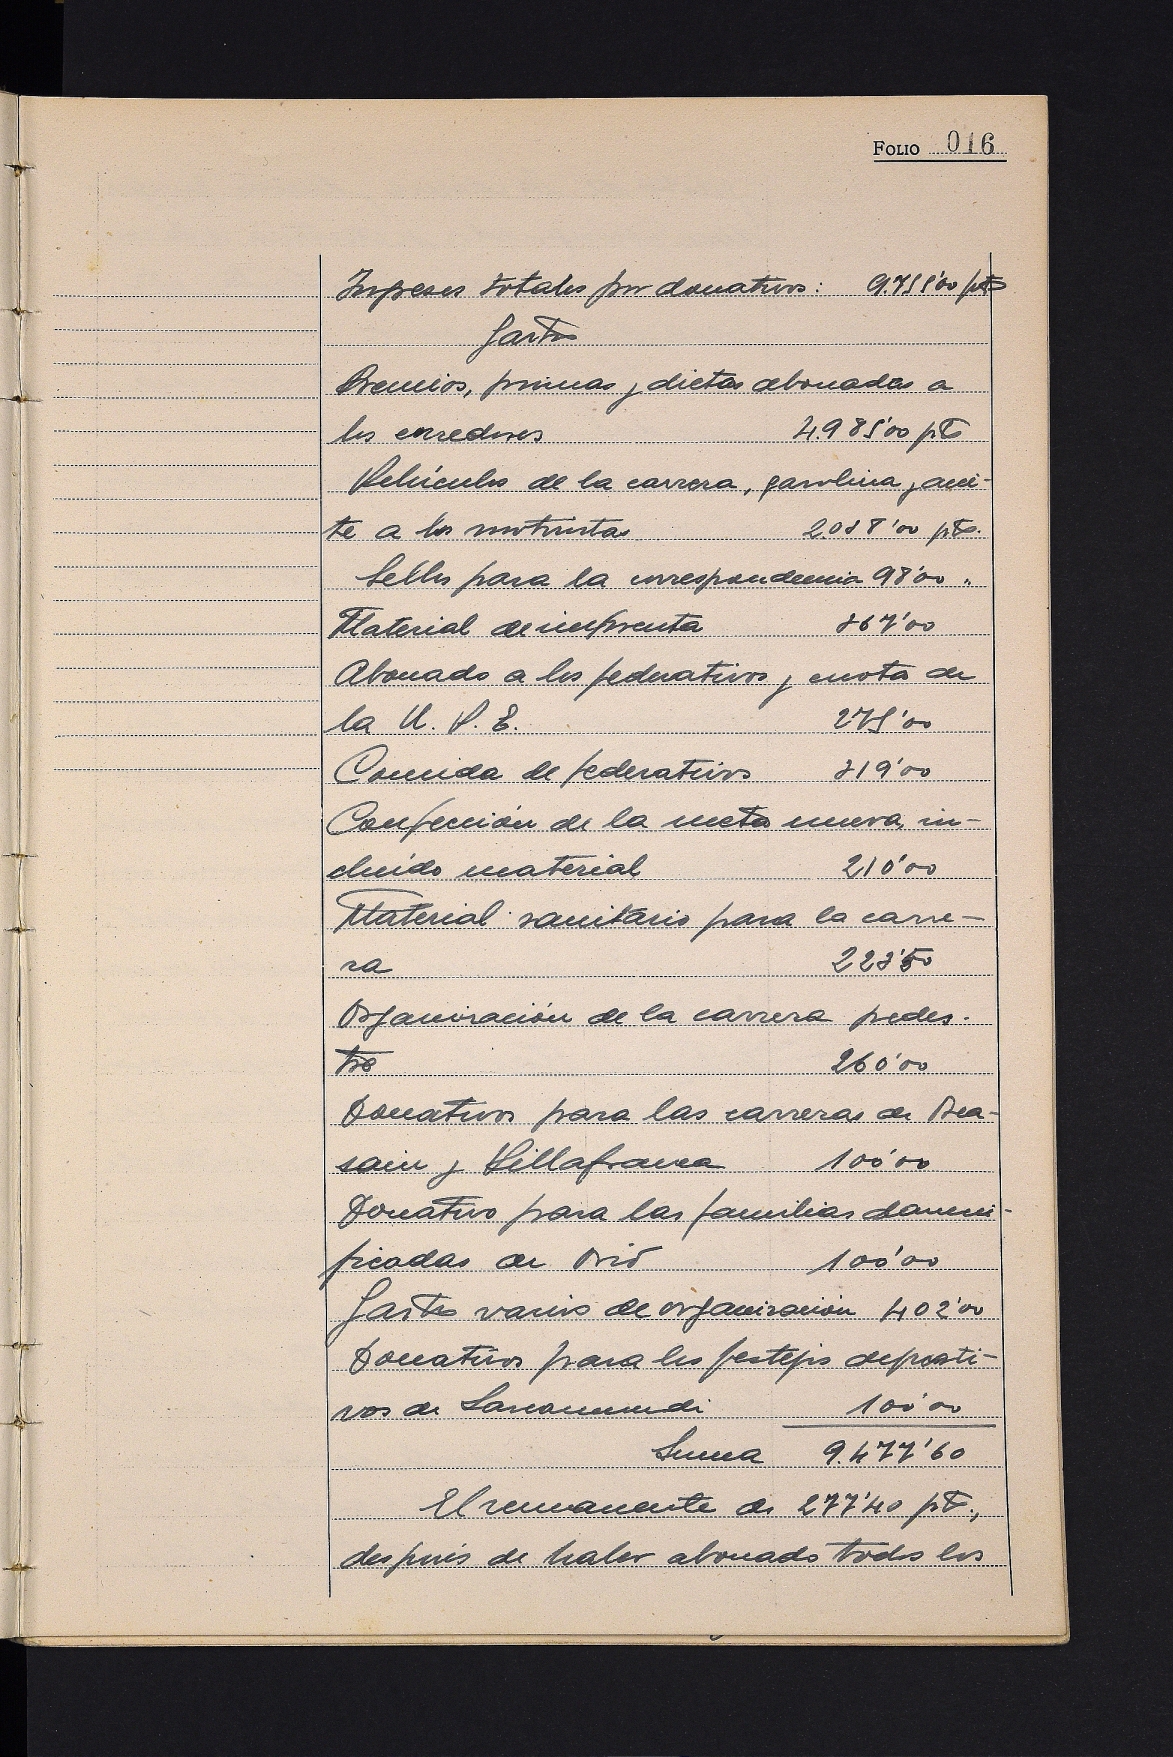 FOLIO 016
Ingresos totales por donativos: 9.755'00 pts
Gastos
Premios, primas y dietas abonadas a
los corredores 4.985'00 pts
Vehículos de la carrera, gasolina y acei-
te a los motoristas 2.038'00 pts.
Sellos para la correspondencia 98'00 "
Material de imprenta 367'00
Abonado a los federativos y cuota de
la U. V. E. 275'00
Comida de federativos 319'00
Confección de la meta nueva, in-
cluido material 210'00
Material sanitario para la carre-
ra 223'60
Organización de la carrera pedes-
tre 260'00
Donativos para las carreras de Bea-
sain y Villafranca 100'00
Donativo para las familias damni-
ficadas de Orio 100'00
Gastos varios de organización 402'00
Donativos para los festejos deporti-
vos de Lazcanomendi 100'00
Suma 9.477'60
El remanente de 277'40 pts.,
después de haber abonado todos los